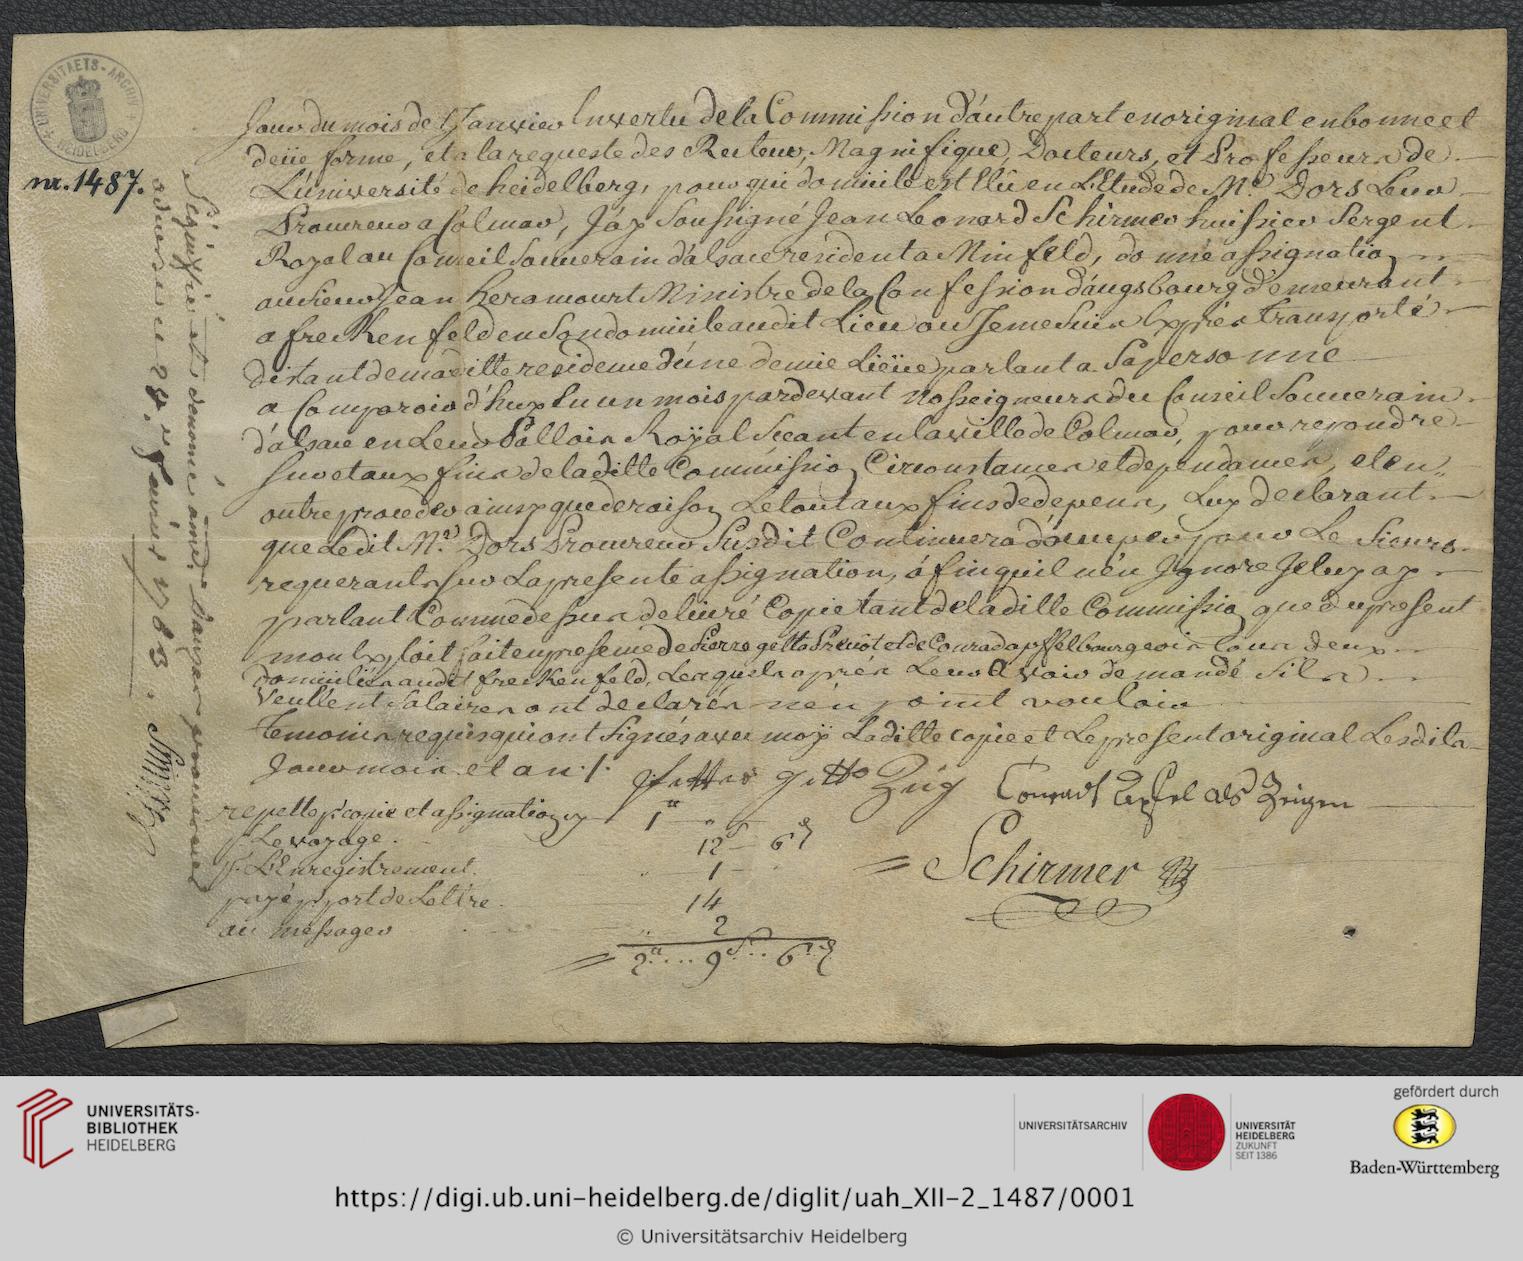 UNIVERSITAETS-ARCHIV HEIDELBERG
nr. 1487.
Jour du mois de Janvier En vertu de la Commission d'autre part en original en bonne et
deüe forme, et a la requeste des Recteur, Magnifique, Docteurs, et Professeurs de
L'université de heidelberg, pour qui domicile est Elû en L'Etude de Me. Dors Leur
Procureur a Colmar, J'ay Soussigné Jean Leonard Schirmer huissier Sergent
Royal au Conseil Souverain d'alsace résident a Minfeld, donné assignation
au Sieur Jean heramourt Ministre de la Confession d'augsbourg demeurant
a frekenfeld en Son domicile audit Lieu ou Je me Suis Exprès transporté
distant de maditte residence d'une demie Lieüe parlant a Sa personne
a Comparoir d'huy En un mois pardevant Nosseigneurs du Conseil Souverain
d'alsace en Leur Pallais Royal Sceant en la ville de Colmar, pour repondre
Sur et aux fins de laditte Commission Circonstances et dependances, et en
outre proceder ainsy que de raison Le tout aux fins de depens, Luy declarant
que Ledit Me. Dors Procureur Susdit Continuera d'occuper pour Le Sieurs
requerants Sur La presente assignation, á fin qu'il n'en Jgnore Je luy ay
parlant Comme dessus delivré Copie tant de laditte Commission que du present
mon Exploit fait en presence de Pierre getto Prevôt et de Conrad apffel bourgeois tous deux
domiciliés audit frekenfeld, Lesquels après Leur avoir demandé Sils
veullent Salaires ont declarés n'en point vouloir
temoins requis qui ont Signés avec moy Laditte copie et Le present original Lesdits
Jour mois et an ./.
getto Züg Conradt Apfel als Zeigen
copie et assignation 1
Le voyage. 12 6
L'Enregistrement. 1
payé p. port de Lettre. 14
au messager 2
2 ... 9 ... 6
Schirmer
Signiffié et donné
1783.
UNIVERSITÄTS-
BIBLIOTHEK
HEIDELBERG
UNIVERSITÄTSARCHIV
UNIVERSITÄT
HEIDELBERG
ZUKUNFT
SEIT 1386
gefördert durch
Baden-Württemberg
https://digi.ub.uni-heidelberg.de/diglit/uah_XII-2_1487/0001
© Universitätsarchiv Heidelberg